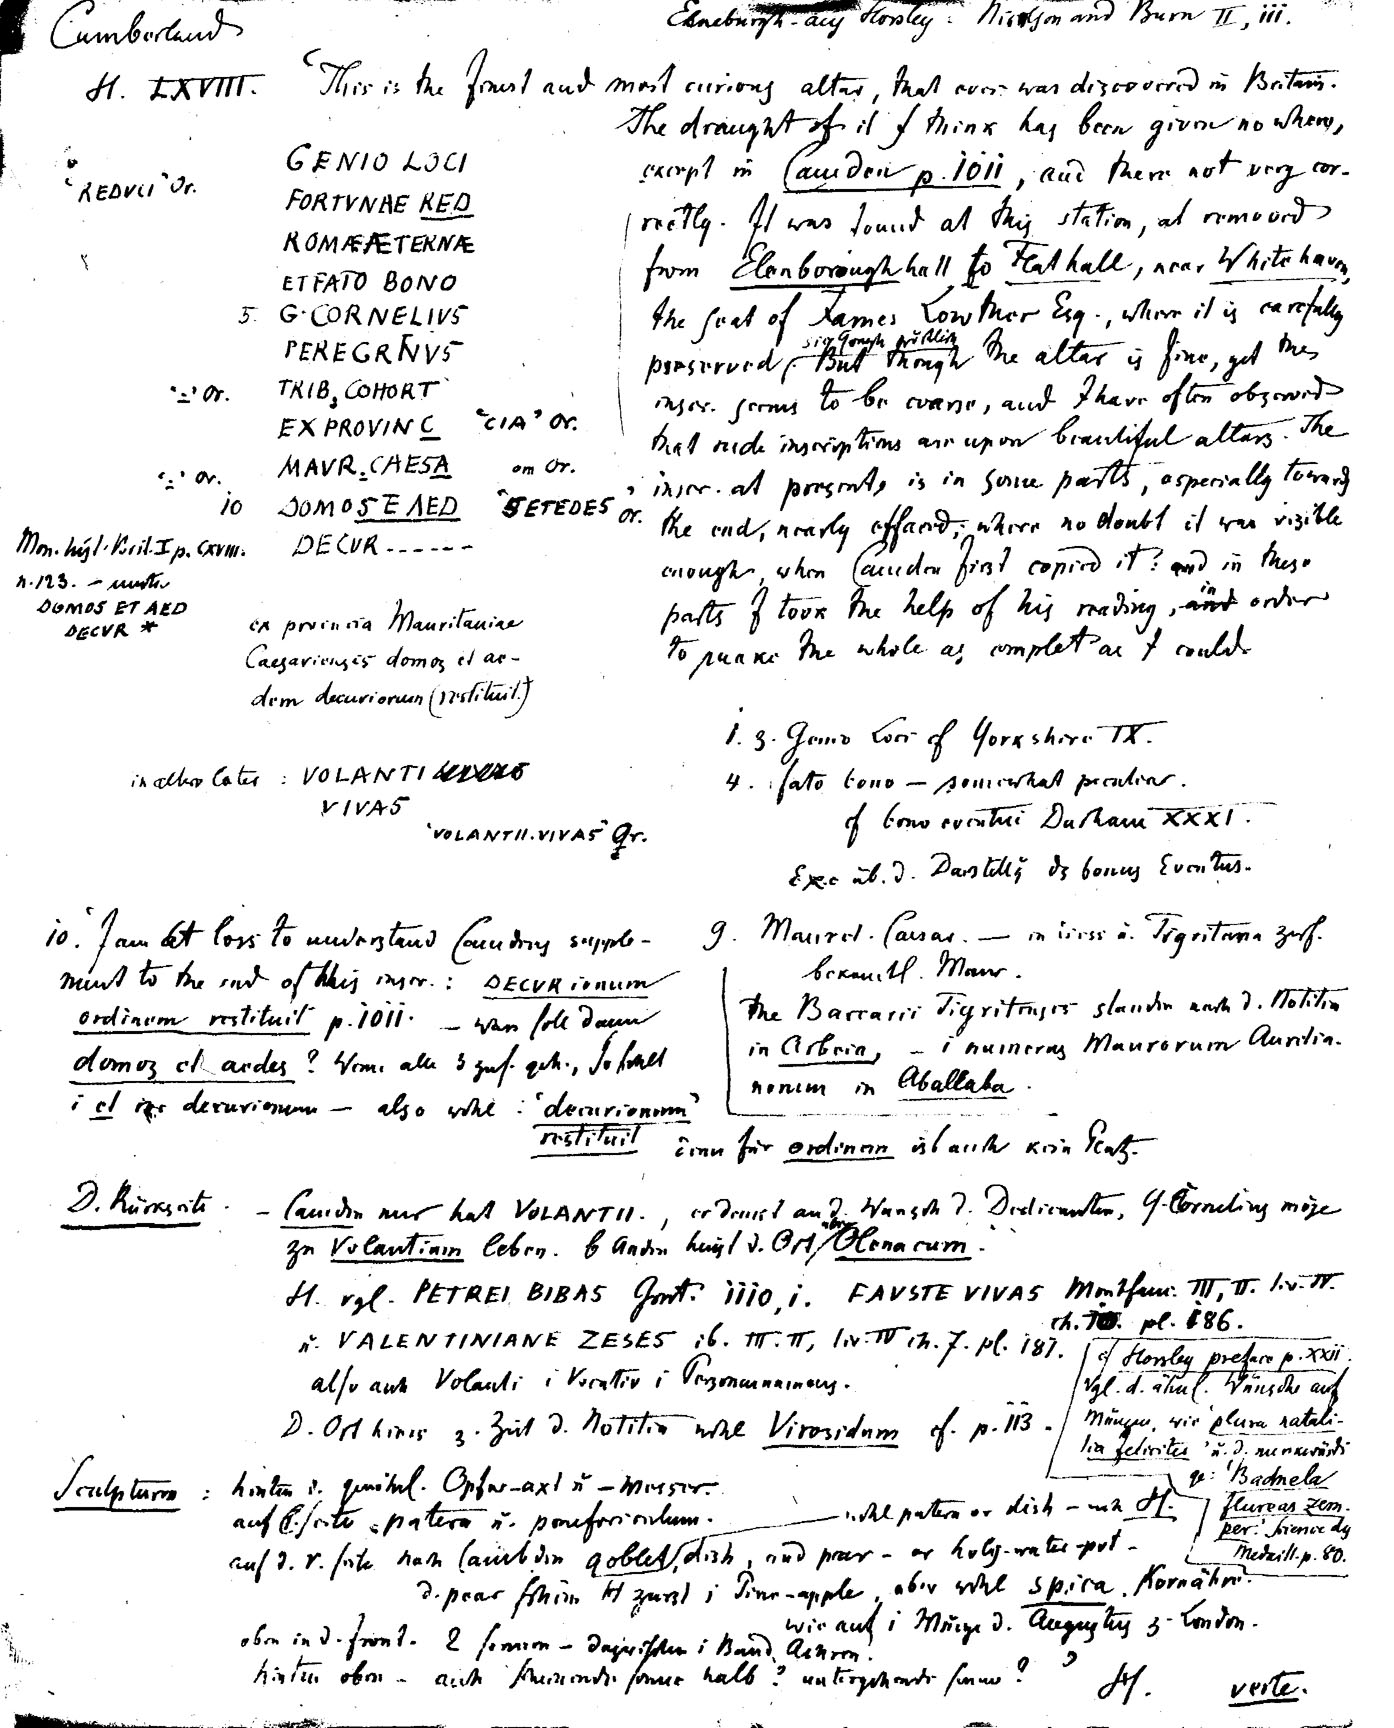 Cumberland
Horsley: Nicolson and Burn II, iii.
H. LXVIII. 'This is the finest and most curious altar, that ever was discovered in Britain.
The draught of it I think has been given no where,
except in Camden p. 1011, and there not very cor-
rectly. It was found at this station, at removed
from Elenborough hall to Flat hall, near White haven,
the seat of James Lowther Esq., where it is carefully
preserved. But though the altar is fine, yet the
inscr. seems to be coarse, and I have often observed
that rude inscriptions are upon beautiful altars. The
inscr. at present, is in some parts, especially toward
the end, nearly effaced; where no doubt it was visible
enough, when Camden first copied it: and in these
parts I took the help of his reading, in order
to make the whole as complet as I could.
GENIO LOCI
"REDVCI" Or. FORTVNAE RED
ROMÆ ÆTERNÆ
ET FATO BONO
5. G·CORNELIVS
PEREGRINVS
"-" Or. TRIB, COHORT
EX PROVINC "CIA" Or.
"-" Or. MAVR. CAESA om Or.
10 DOMOS E AED "SETEDES" Or.
DECVR ------
Mon. hist. Brit. I p. CXVIII.
n. 123. —
DOMOS ET AED
DECVR *
ex provincia Mauritaniae
Caesariensis domos et ae-
dem decurionum (restituit.)
in altero latere: VOLANTI
VIVAS
"VOLANTII.VIVAS" Or.
1. 3. Genio Loci cf Yorkshire IX.
4. fato bono — somewhat peculiar.
cf bono eventui Durham XXXI.
üb. d. Darstellg ds bonus Eventus.
10. 'I am at loss to understand Camdens supple-
ment to the end of this inscr.: DECVRionum
ordinem restituit p. 1011. — was soll dann
domos et aedes? Wenn alle 3 zus. geh., so fehlt
i et decurionum — also wohl: "decurionum"
restituit denn für ordinem ist auch kein Platz.
9. Mauret. Caesar. — Tigritana
bekanntl. Maur.
the Barcarii Tigritenses standen nach d. Notitia
in Arbeia, — i numerus Maurorum Aurelia-
norum in Aballaba.
D. Rückseite. — Camden nur hat VOLANTII., er denkt an d. Wunsch d. Dedicanten, G. Cornelius möge
zu Volantium leben. b Andern heisst d. Ort Olenacum.
H. vgl. PETREI BIBAS Grut. 1110, i. FAVSTE VIVAS Montfauc. III, II. liv. IV.
ch. pl. 186.
u. VALENTINIANE ZESES ib. III. II, liv. IV ch. 7. pl. 187.
also auch Volanti i Vocativ i Personennamens.
D. Ort hiess z. Zeit d. Notitia wohl Virosidum cf. p. 113.
cf Horsley preface p. XXII
vgl. d. ähnl. Wünsche auf
Münzen, wie 'plura natali-
tia feliciter' u. d. merkwürdi
ge: 'Baduela
flureas sem-
per.' Science dy
Medaill. p. 80.
Sculpturen: hinten d. gewöhnl. Opfer-axt u — messer.
auf seite patera u. praefericulum. wohl patera or dish — nach H.
auf d. r. seite nach Cambden goblet, dish, and pear — or holy-water-pot —
d. pear schien H zuerst i Pine-apple, aber wohl spica, Kornähre.
wie auf i Münze d. Augustus z. London.
oben in d. front. 2 sonnen — dazwischen i Band,
hinten oben — auch scheinende sonne halb? untergehende sonne?
H. verte.